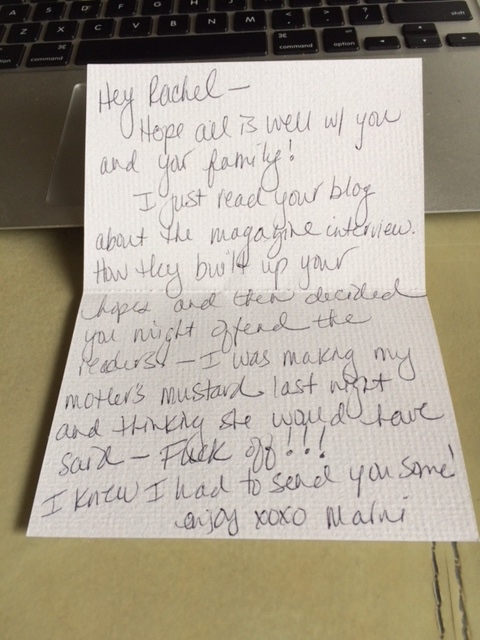 X C V B N M < > ? /
command option command option shift
Hey Rachel —
Hope all is well w/ you
and your family!
I just read your blog
about the magazine interview.
How they built up your
hopes and then decided
you might offend the
readers! — I was making my
mother's mustard last night
and thinking she would have
said — Fuck off!!!
I knew I had to send you some!
enjoy xoxo Marni